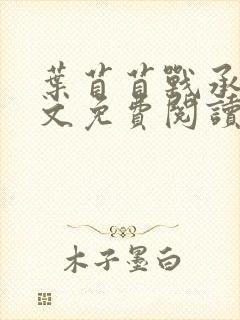 葉苜苜戰承
文免費閱讀
木子墨白